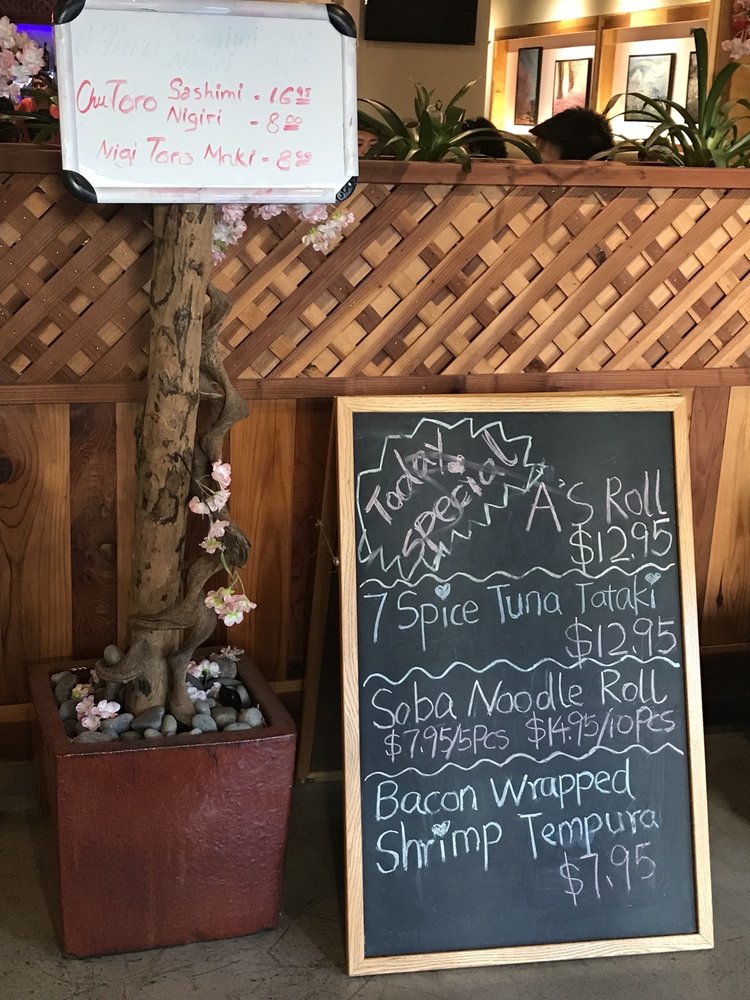 Chu-Toro Sashimi - 16.95
Nigiri - 8.00
Nigi Toro Maki - 8.00
Today's
Special
A's Roll
$12.95
7 Spice Tuna Tataki
$12.95
Soba Noodle Roll
$7.95/5pcs $14.95/10pcs
Bacon Wrapped
Shrimp Tempura
$7.95